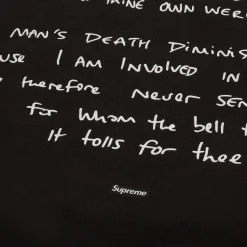 THINE OWN WERE
MAN'S DEATH DIMINIS
USE I AM INVOLVED IN
therefore NEVER SEN
for Whom the bell t
It tolls for thee
Supreme